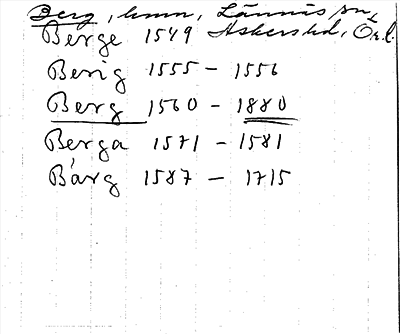 Berg, hmn, Lännäs sn,
Askers hd, Ör. l.
Berge 1549
Berig 1555 - 1556
Berg 1560 - 1880
Berga 1571 - 1581
Bärg 1587 - 1715